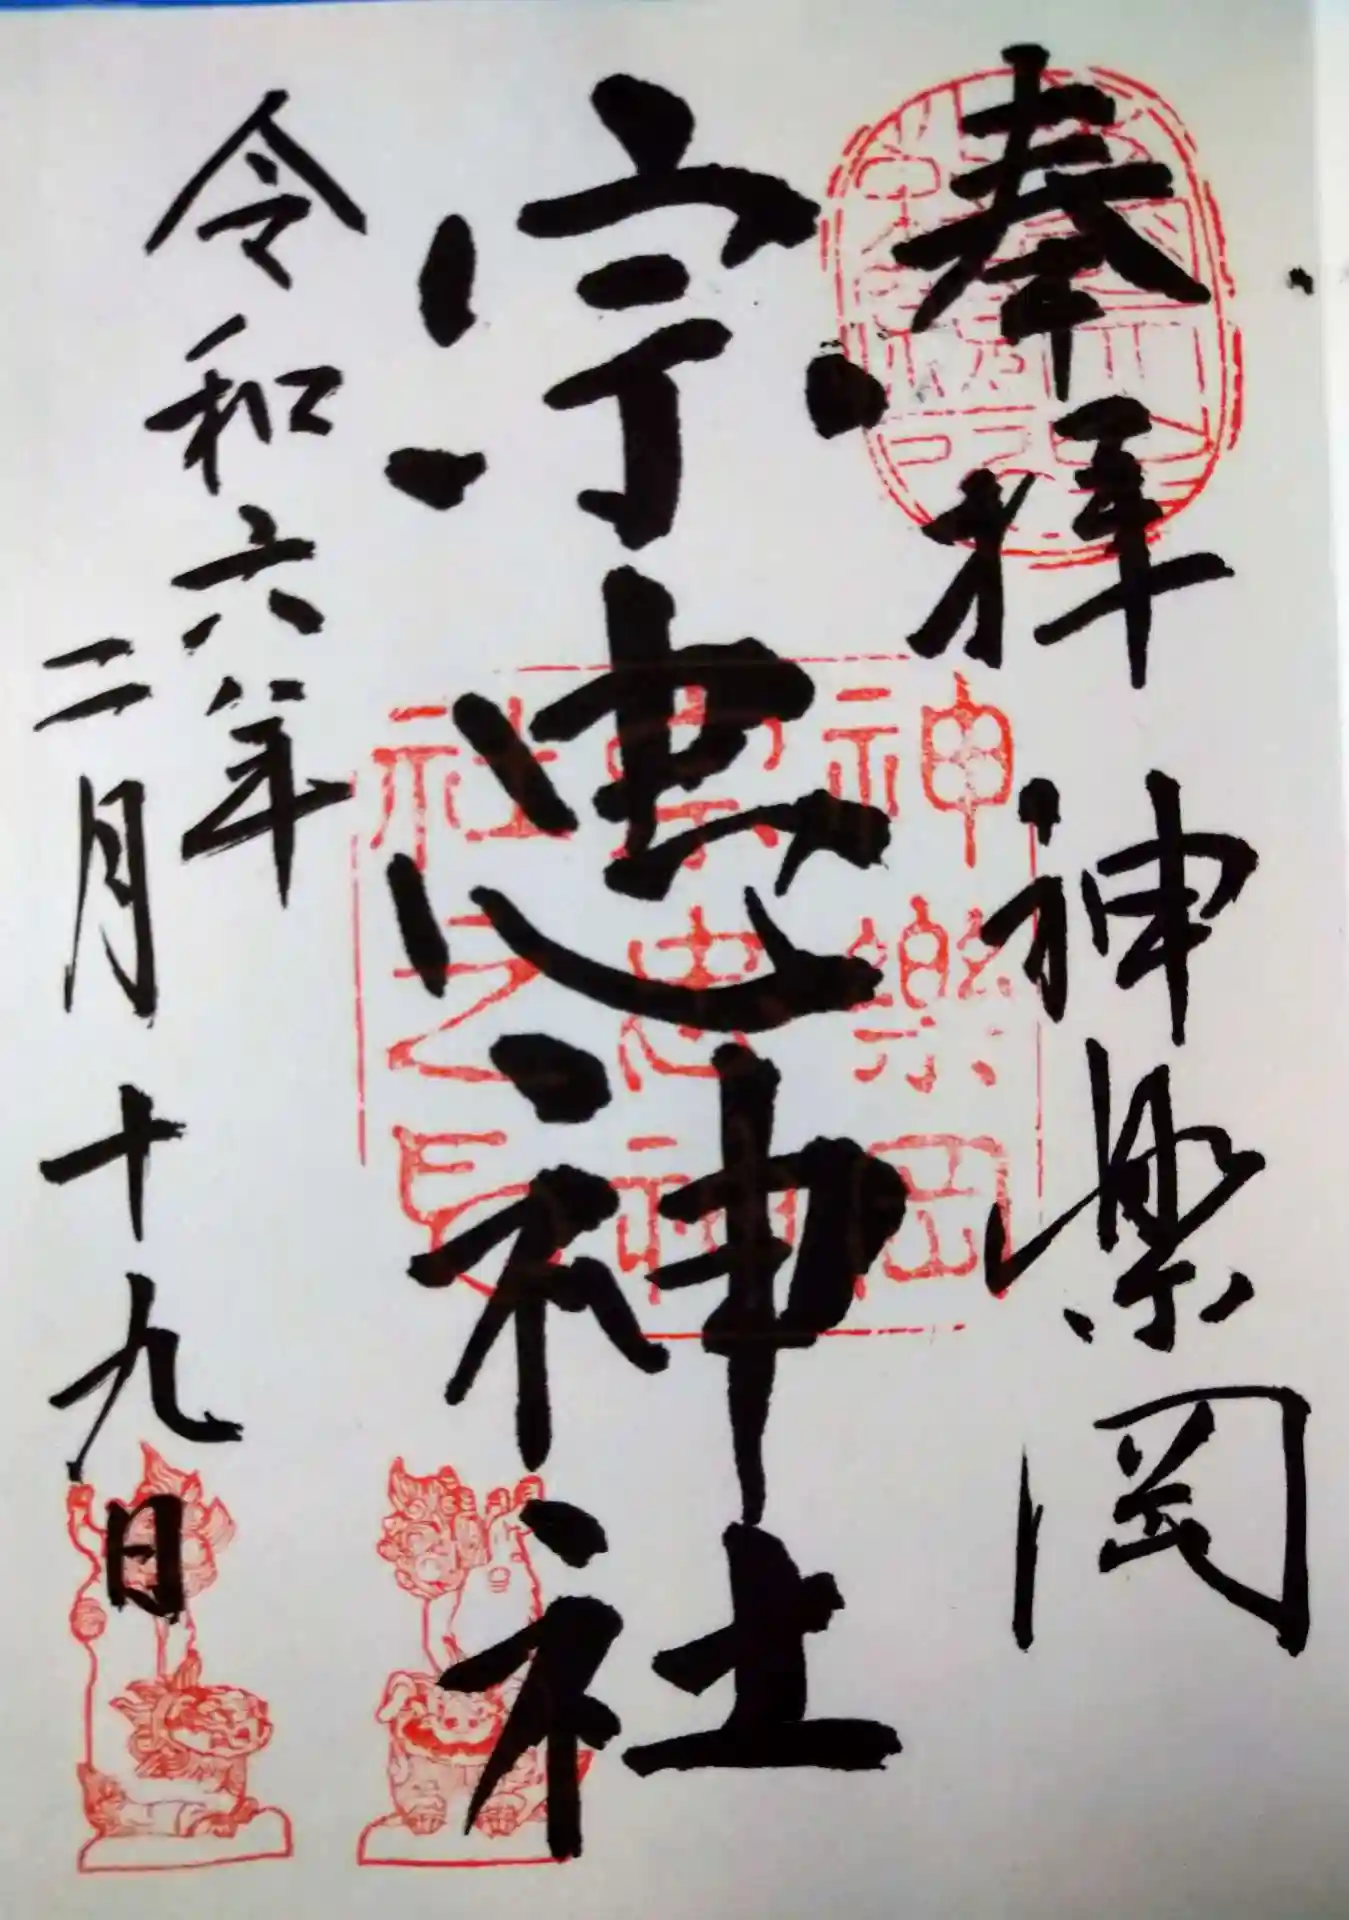 奉拝
神楽岡
宗忠神社
令和六年
二月十九日
神楽岡
宗忠神
社之印